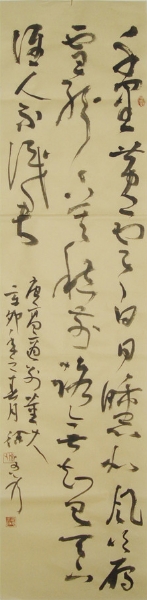 千里黄云白日曛北風吹雁
雪紛紛莫愁前路無知己天下
誰人不識君
唐高適別董大
辛卯年之春月徐